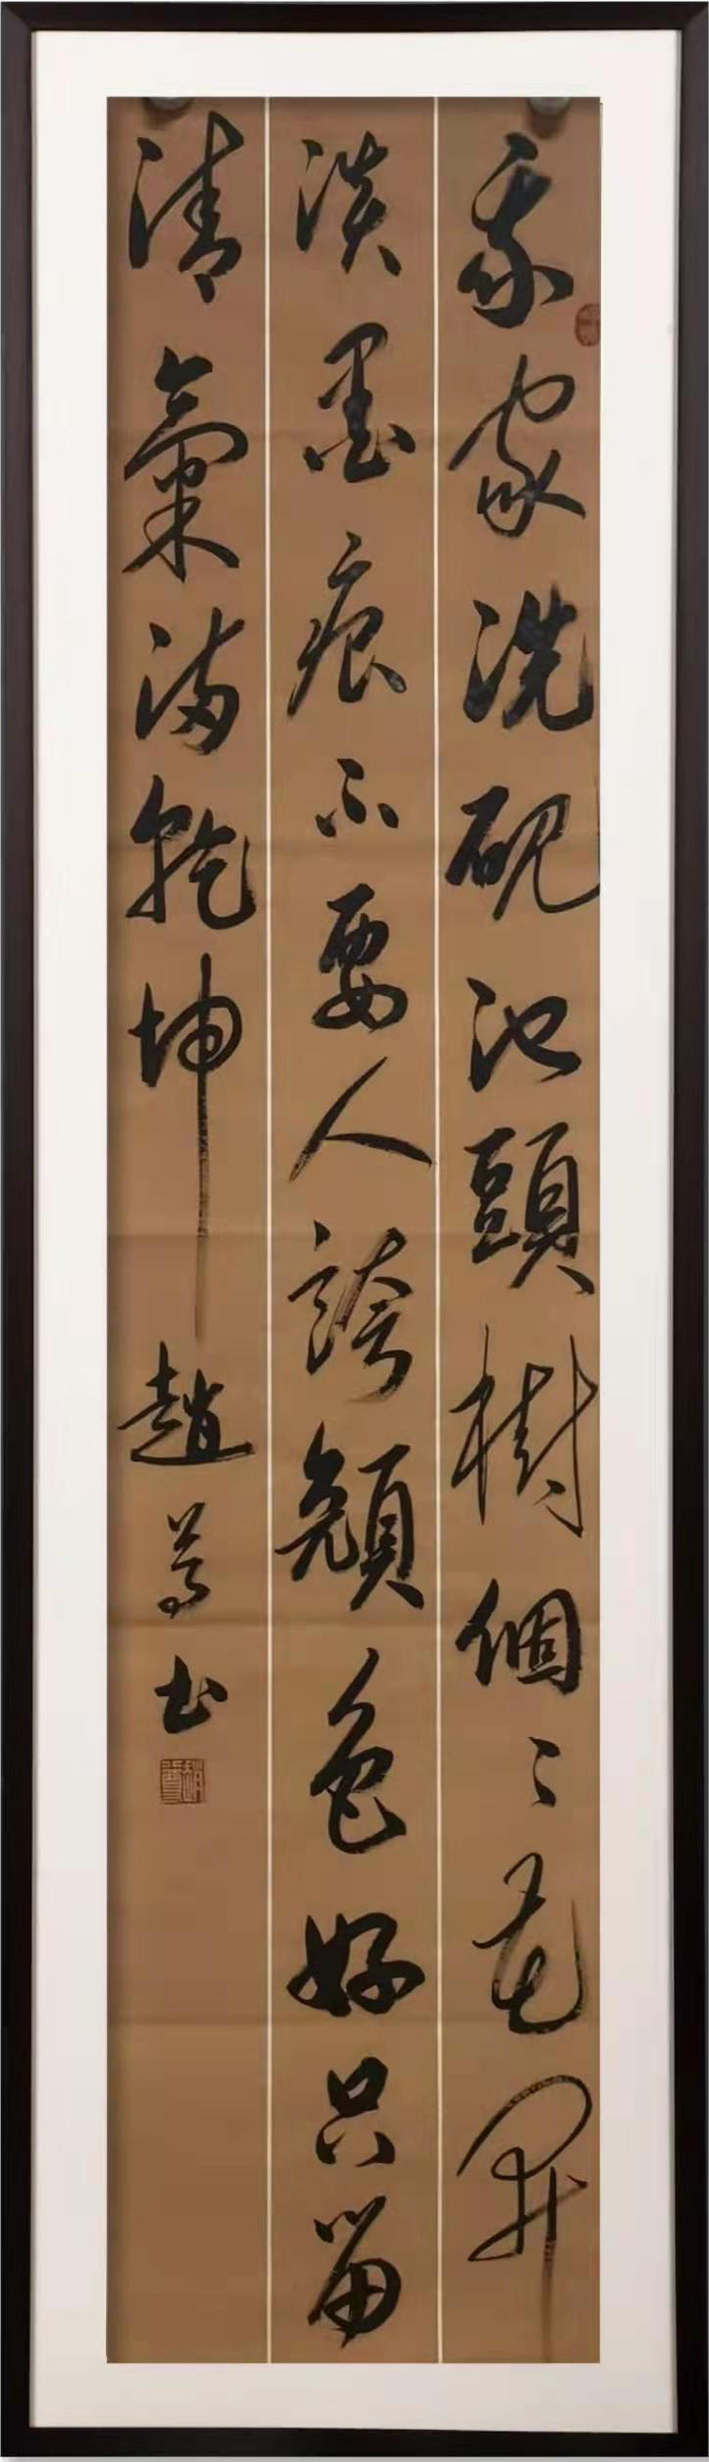 我家洗硯池頭樹個〻花開
淡墨痕不要人誇顏色好只留
清氣滿乾坤
趙書